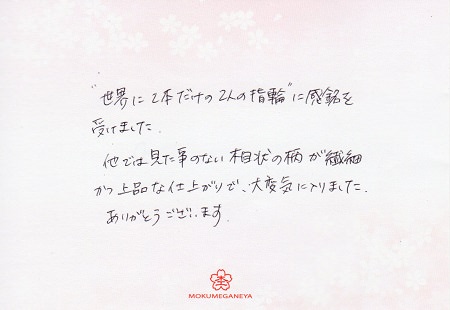 "世界に2本だけの2人の指輪"に感銘を
受けました.
他では見た事のない相状の柄が繊細
かつ上品な仕上がりで、大変気に入りました.
ありがとうございます.
杢
MOKUMEGANEYA